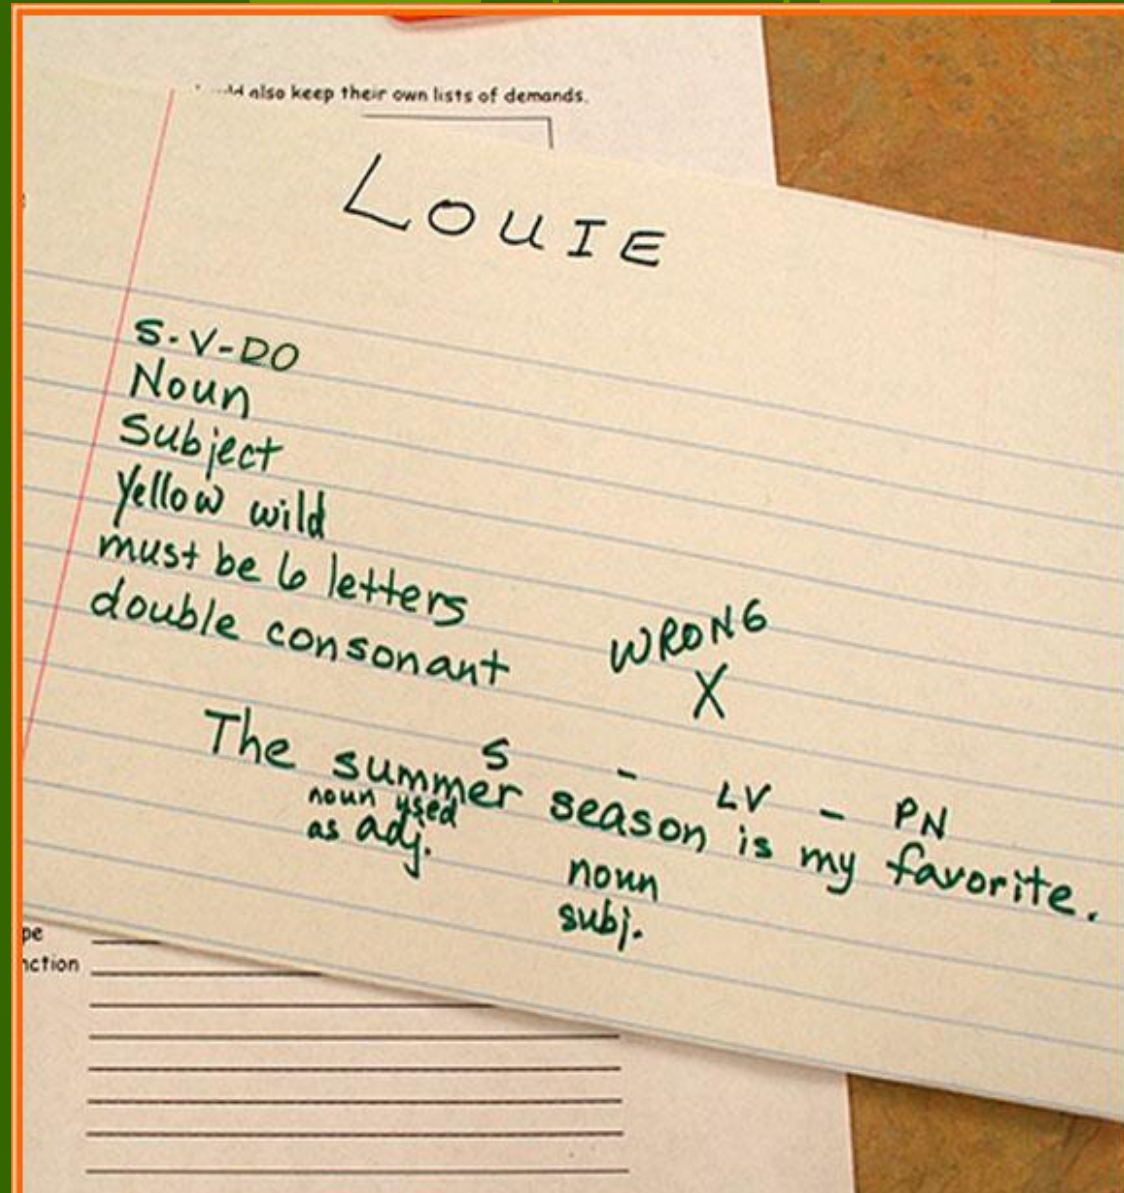 also keep their own lists of demands.
LOUIE
S-V-DO
Noun
Subject
Yellow wild
must be 6 letters
double consonant
WRONG
X
S - LV - PN
The summer season is my favorite.
noun used
as adj.
noun
subj.